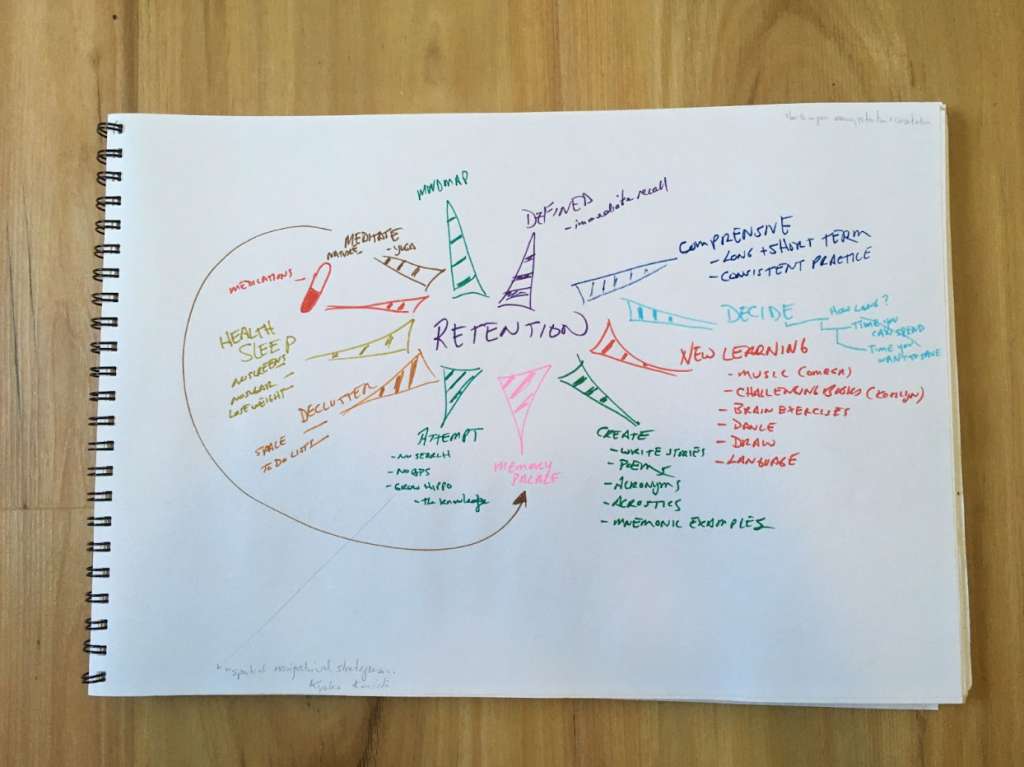 MINDMAP
DEFINED
- immediate recall
COMPRENSIVE
- LONG + SHORT TERM
- CONSISTENT PRACTICE
DECIDE
HOW LONG?
TIME YOU
CAN SPEND
TIME YOU
WANT TO
NEW LEARNING
- MUSIC (OMEGA)
- CHALLENGING
- BRAIN EXERCISES
- DANCE
- DRAW
- LANGUAGE
CREATE
- WRITE STORIES
- POEMS
- ACRONYMS
- ACROSTICS
- MNEMONIC EXAMPLES
MEMORY
PALACE
ATTEMPT
- NO SEARCH
- NO GPS
- GROW HIPPO
- The Knowledge
DECLUTTER
TO DO LISTS
HEALTH
SLEEP
NO SCREENS
NO SUGAR
LOSE WEIGHT
MEDICATIONS
MEDITATE
NATURE - YOGA
RETENTION
spatial navigational strategies